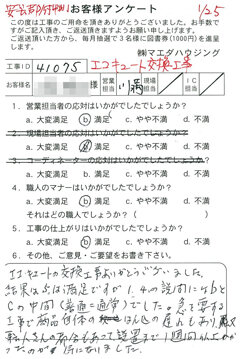 安芸郡府中町 お客様アンケート 1/25
この度は工事のご用命を頂きありがとうございました。お手数で
すがご記入頂き、ご返送頂きますようお願い申し上げます。
ご返送頂いた方から、毎月抽選で3名様に図書券(1000円)を進呈し
ます。
㈱マエダハウジング
工事ID 41075 エコキュート交換工事
お客様 営業担当 現場担当 IC担当
1. 営業担当者の応対はいかがでしたでしょうか?
a. 大変満足 b. 満足 c. やや不満 d. 不満
2. 現場担当者の応対はいかがでしたでしょうか?
a. 大変満足 b. 満足 c. やや不満 d. 不満
3. コーディネーターの応対はいかがでしたでしょうか?
a. 大変満足 b. 満足 c. やや不満 d. 不満
4. 職人のマナーはいかがでしたでしょうか?
a. 大変満足 b. 満足 c. やや不満 d. 不満
それはどの職人でしょうか? ( )
5. 工事の仕上がりはいかがでしたでしょうか?
a. 大変満足 b. 満足 c. やや不満 d. 不満
6. その他、ご意見・ご要望をお書き下さい。
エコキュートの交換工事ありがとうございました。
結果は5は満足ですが1.4の設問にはbと
Cの中間(普通=通常)でした。急を要する
工事で商品自体の
の都合もあって設置まで1週間以上かか
ったのが気になりました。